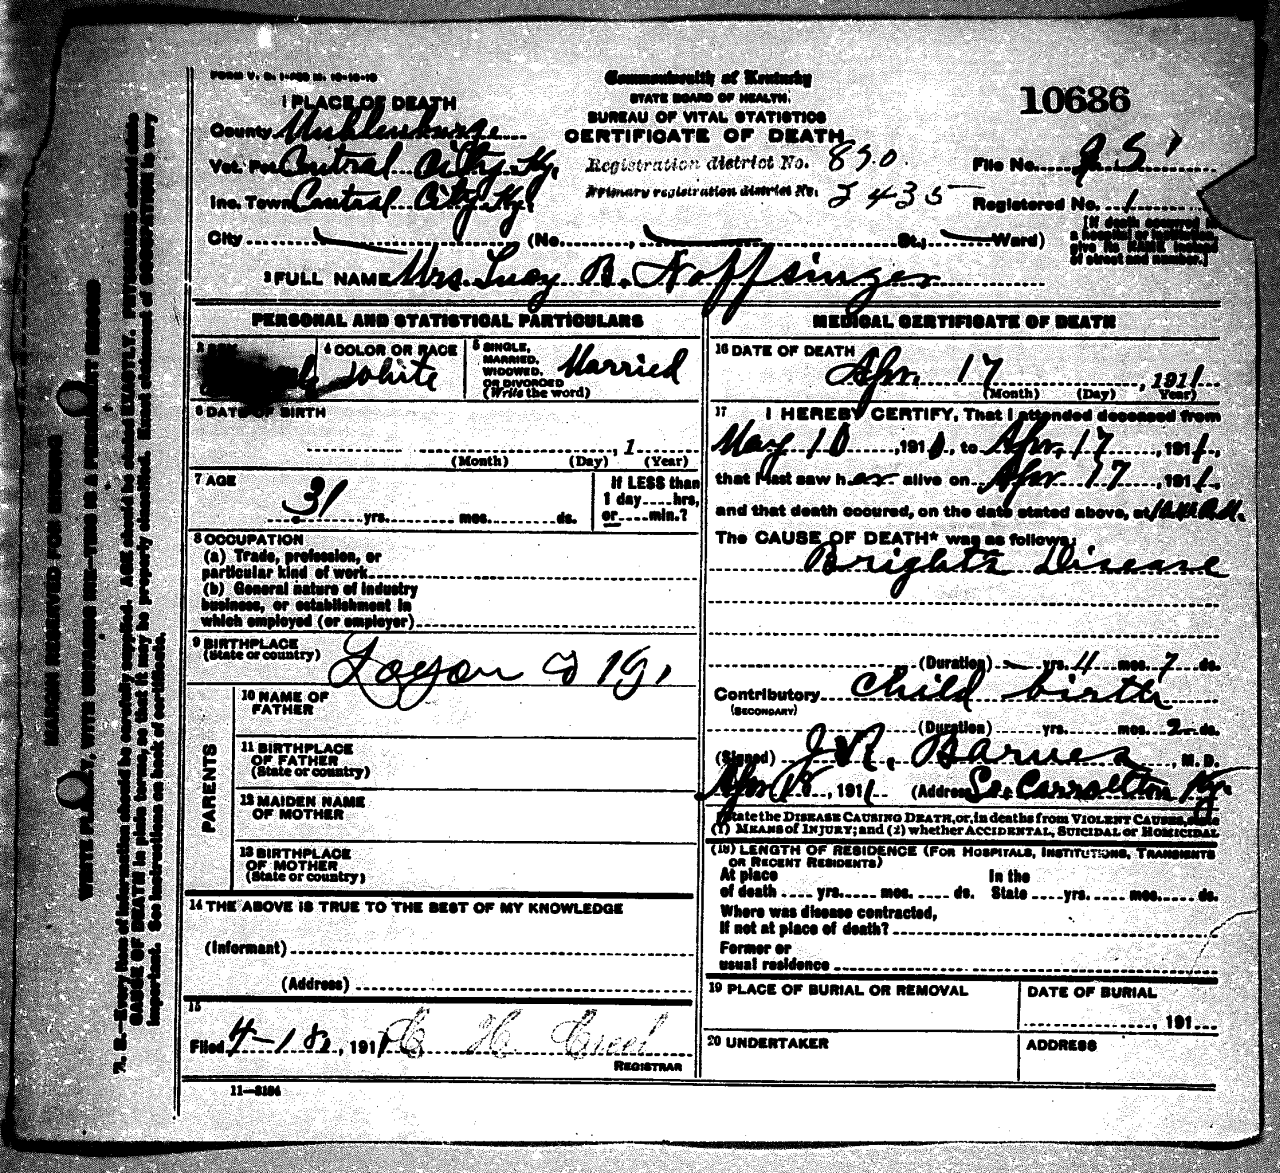 FORM V. S. 1-
Commonwealth of Kentucky
STATE BOARD OF HEALTH.
BUREAU OF VITAL STATISTICS
CERTIFICATE OF DEATH
10686
1 PLACE OF DEATH
County
Vot. Pct Central City, Ky.
Inc. Town Central City Ky
Registration district No. 890
Primary registration district No. 2435
File No.
Registered No. 1
City (No. , St.; Ward)
[If death occurred in a hospital or institution, give its NAME instead of street and number.]
2 FULL NAME Mrs. Lucy B. Noffsinger
PERSONAL AND STATISTICAL PARTICULARS
4 COLOR OR RACE White
5 SINGLE, MARRIED, WIDOWED, OR DIVORCED (Write the word) Married
6 DATE OF BIRTH
, 1
(Month) (Day) (Year)
7 AGE
31 yrs. mos. ds.
If LESS than 1 day hrs, or min.?
8 OCCUPATION
(a) Trade, profession, or
particular kind of work
(b) General nature of industry
business, or establishment in
which employed (or employer)
9 BIRTHPLACE
(State or country)
PARENTS
10 NAME OF FATHER
11 BIRTHPLACE OF FATHER (State or country)
12 MAIDEN NAME OF MOTHER
13 BIRTHPLACE OF MOTHER (State or country)
14 THE ABOVE IS TRUE TO THE BEST OF MY KNOWLEDGE
(Informant)
(Address)
15
Filed 4-18, 1911 C H Creel
REGISTRAR
11-3184
MEDICAL CERTIFICATE OF DEATH
16 DATE OF DEATH
Apr. 17, 1911
(Month) (Day) Year)
17 I HEREBY CERTIFY, That I attended deceased from
May 10, 1910, to Apr. 17, 1911,
that I last saw her alive on Apr 17, 1911,
and that death occured, on the date stated above, at
The CAUSE OF DEATH* was as follows:
Brights Disease
(Duration) yrs. 4 mos. 7 ds.
Contributory Child birth
(SECONDARY)
(Duration) yrs. mos. 2 ds.
(Signed) Barnes, M. D.
Apr 18, 1911 (Address) So. Carrollton Ky.
State the DISEASE CAUSING DEATH, or, in deaths from VIOLENT CAUSES, state
(1) MEANS OF INJURY; and (2) whether ACCIDENTAL, SUICIDAL or HOMICIDAL
(18) LENGTH OF RESIDENCE (FOR HOSPITALS, INSTITUTIONS, TRANSIENTS
OR RECENT RESIDENTS)
At place of death yrs. mos. ds. In the State yrs. mos. ds.
Where was disease contracted,
If not at place of death?
Former or
usual residence
19 PLACE OF BURIAL OR REMOVAL
DATE OF BURIAL
, 191
20 UNDERTAKER
ADDRESS
MARGIN RESERVED FOR BINDING
WRITE PLAINLY, WITH UNFADING INK—THIS IS A PERMANENT RECORD
N. B.—Every item of information should be carefully supplied. AGE should be stated EXACTLY. PHYSICIANS should state
CAUSE OF DEATH in plain terms, so that it may be properly classified. Exact statement of OCCUPATION is very
important. See instructions on back of certificate.